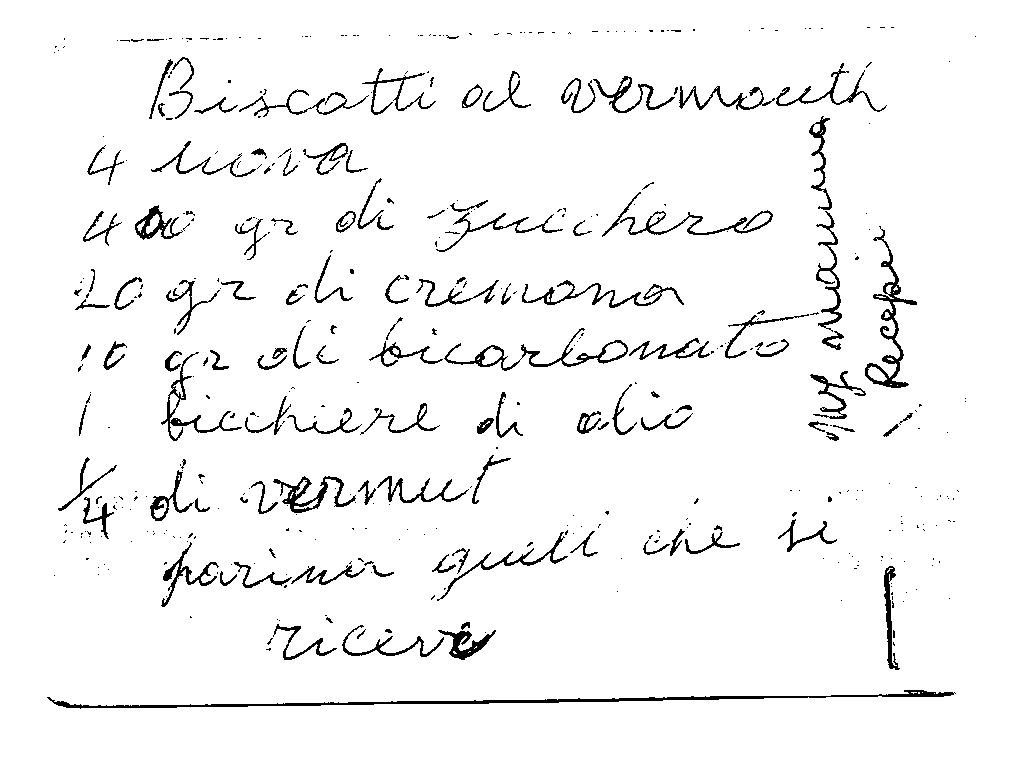 Biscotti al vermouth
4 uova
400 gr di zucchero
20 gr di cremona
10 gr di bicarbonato
1 bicchiere di olio
1/4 di vermut
farina queli che si
riceve
My mamma
Recepie